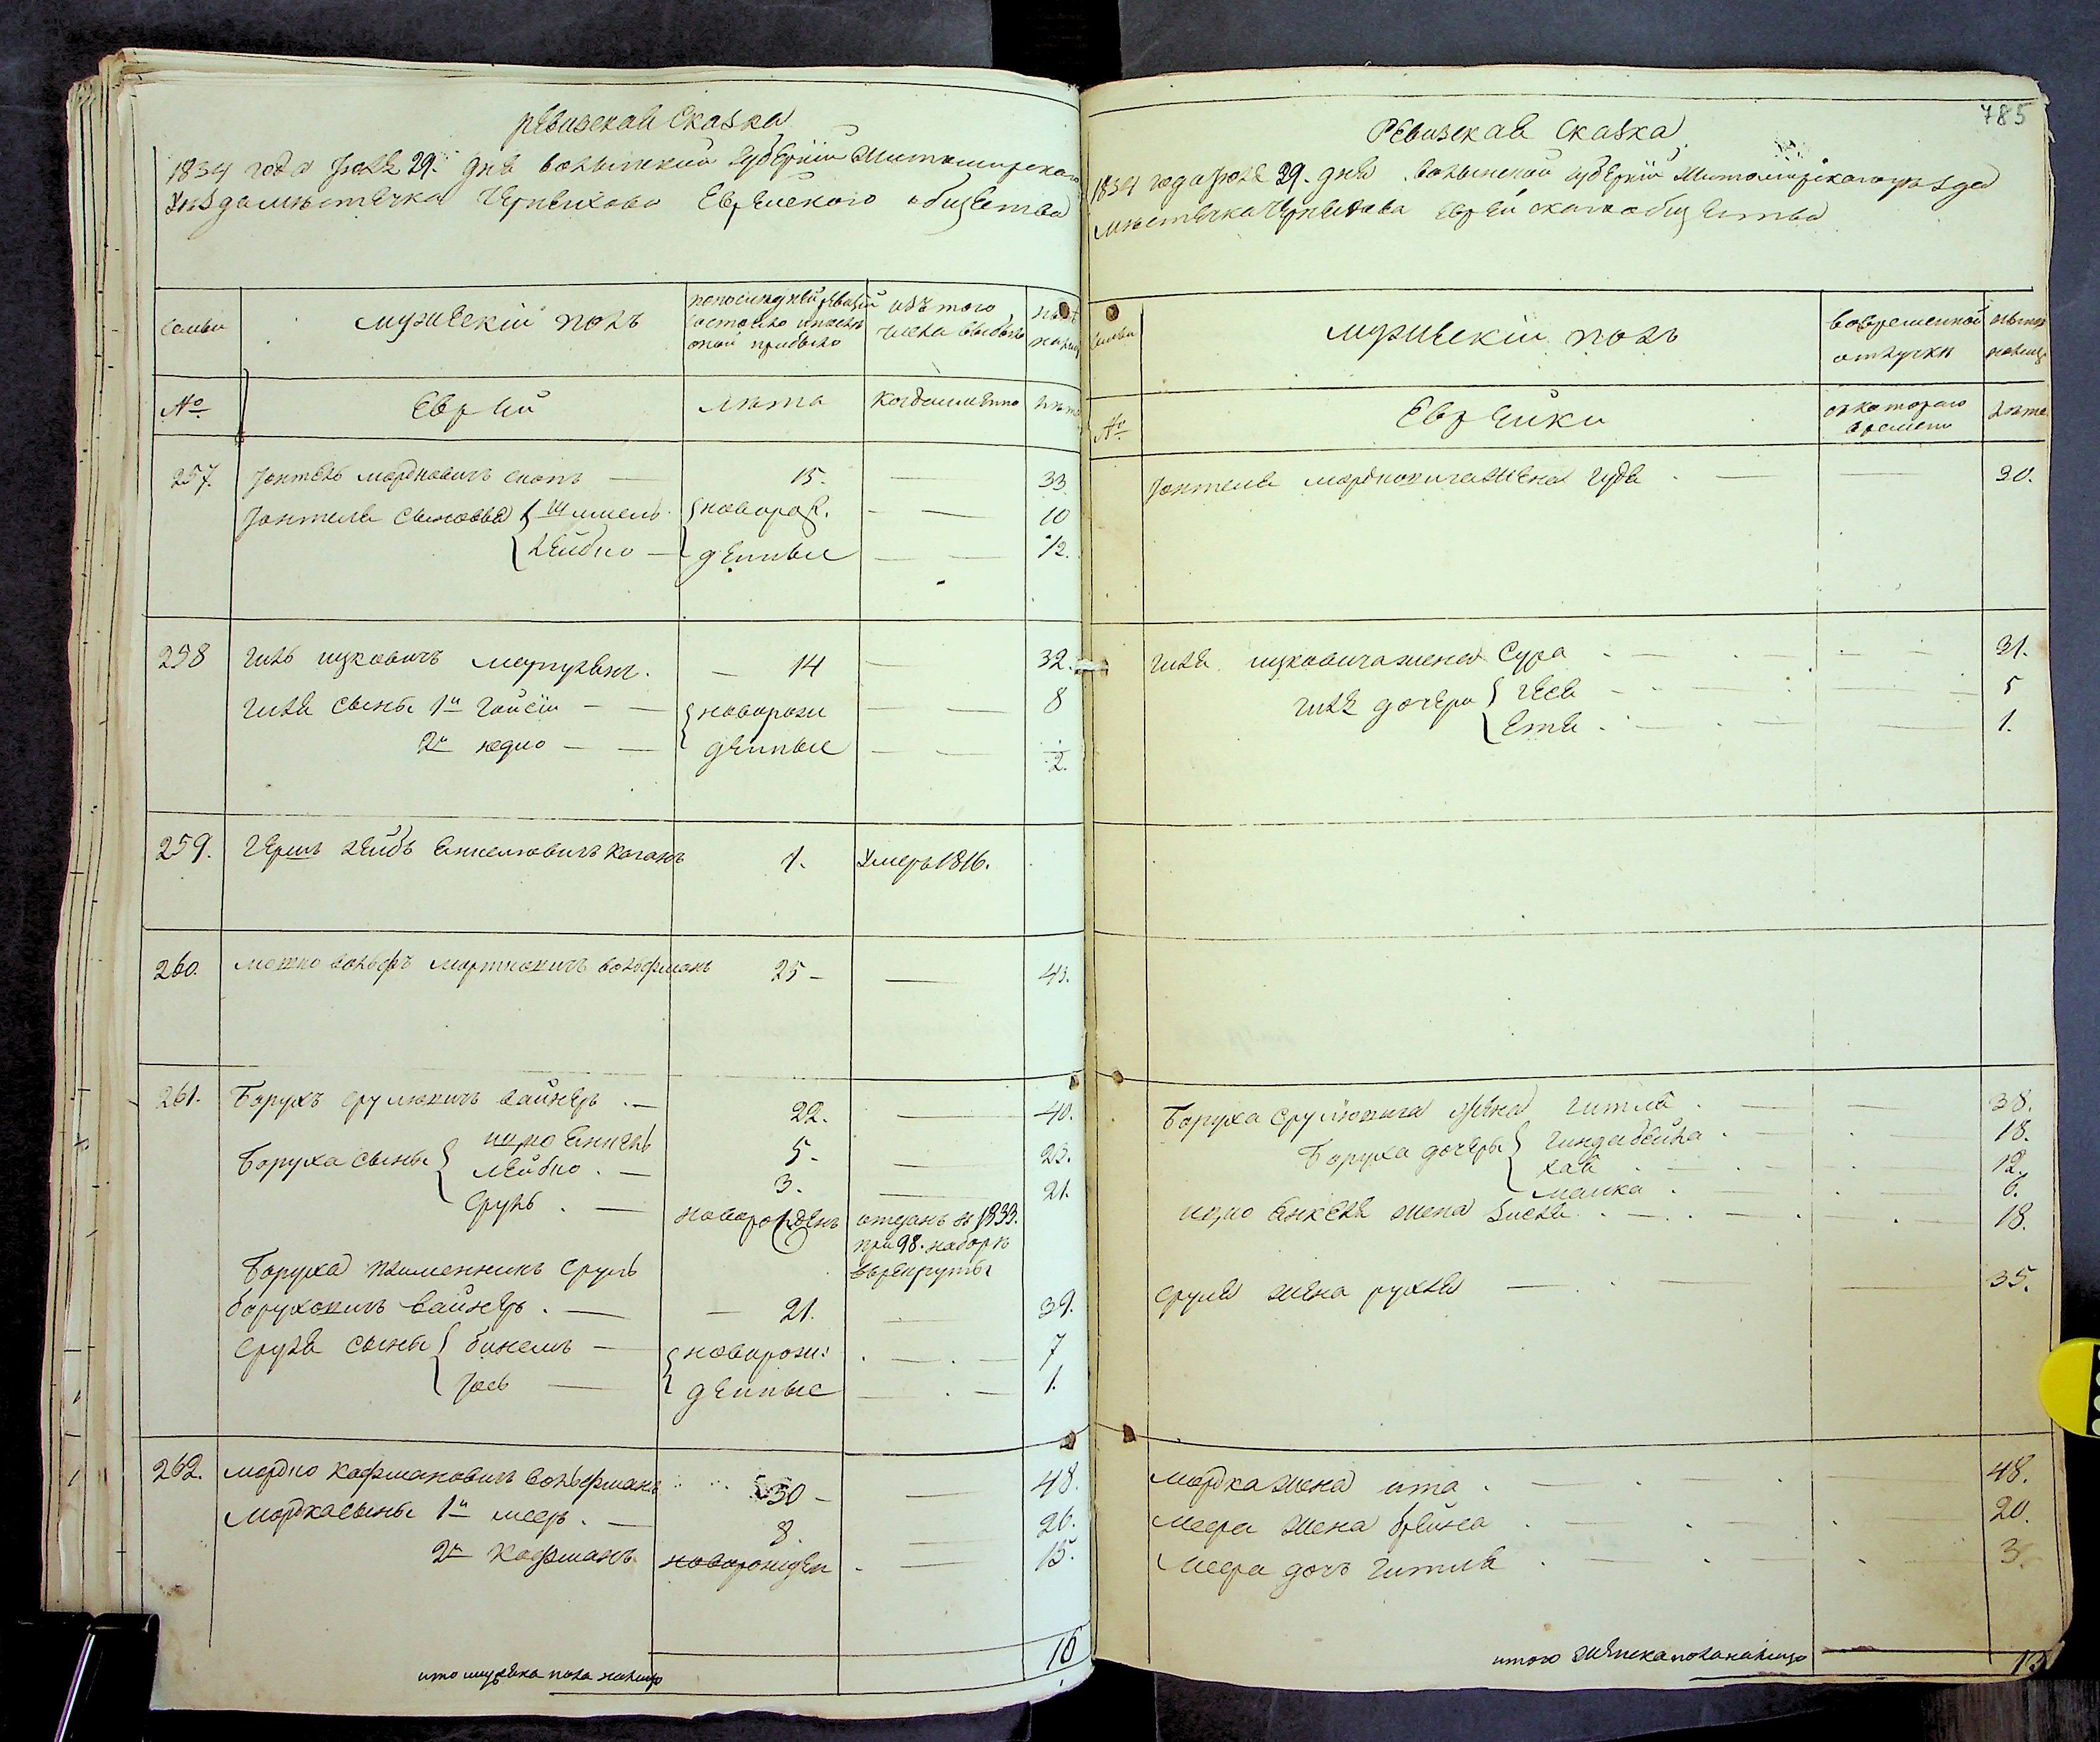 Ревизская Сказка
1834 года Июля 29. дня Волынской Губернии Житомирскаго
Уезда местечка Черняхова Еврейского общества
семьи
мужескій полъ
по последней ревизіи состояло и после оной прибыло
изъ того числа выбыло
ныне на лицо
№
Еврей
лета
когда именно
лета
257. Іонтель Мордковичъ 15. — 33.
Іонтеля сыновья Шмиель новорож. — — 10
Лейбко — денные — — 1/2.
258 Гиль Ицковичъ — 14 — 32.
Гиля сыны 1й — — новорож — — 8
2й — — денные — — 1/2.
259. Гершъ Лейбъ Янкелювичъ Коганъ 1. Умеръ 1816.
260. Мошко Вольфъ Мортковичъ Вольфманъ 25 — — 43.
261. Борухъ Срулювичъ Вайнеръ . — 22. — 40.
Боруха сыны Ицко Янкель 5. — 23.
Лейбко . — 3. — 21.
Сруль . — новорожденъ отданъ в 1833.
при 98. наборе
в рекруты
Боруха племенникъ Сруль
Боруховичъ Вайнеръ . — — 21. — 39.
Сруля сыны — новорож: . — . — 7
Іось — денные — . — 1.
262. Мордко Кофмановичъ Вольфманъ 30 — — 48.
Мордка сыны 1й Меер . — 8. — 26.
2й Кофманъ новорожден . — 15.
итого мужеска пола на лицо 16
785
Ревизская Сказка
1834 года Июля 29. дня Волынской Губерніи Житомирскаго уезда
местечка Черняхова Еврейскаго общества
семьи
мужескій полъ
во временной отлучки
ныне на лицо
№
Еврейки
съ котораго времени
лета
Іонтеля Мордковича жена . — — 30.
Гиля Ицковича жена Сура . — . — . — — 31.
Гиля дочери — . — . — 5
Етя . — . — — 1.
Боруха Срулювича жена Гитля . — — 38.
Боруха дочеры Гинда Бейла . — . — 18.
Хая . — . — . — 12.
Малка . — . — 6.
Ицко Янкеля жена . — . — . — . — 18.
Сруля жена Рухля — . — — 35.
Мордка жена Ита . — . — . — 48.
Меера жена Брейна . — . — . 20.
Меера дочь Гитля . — . — . 3.
итого женска пола на лицо —